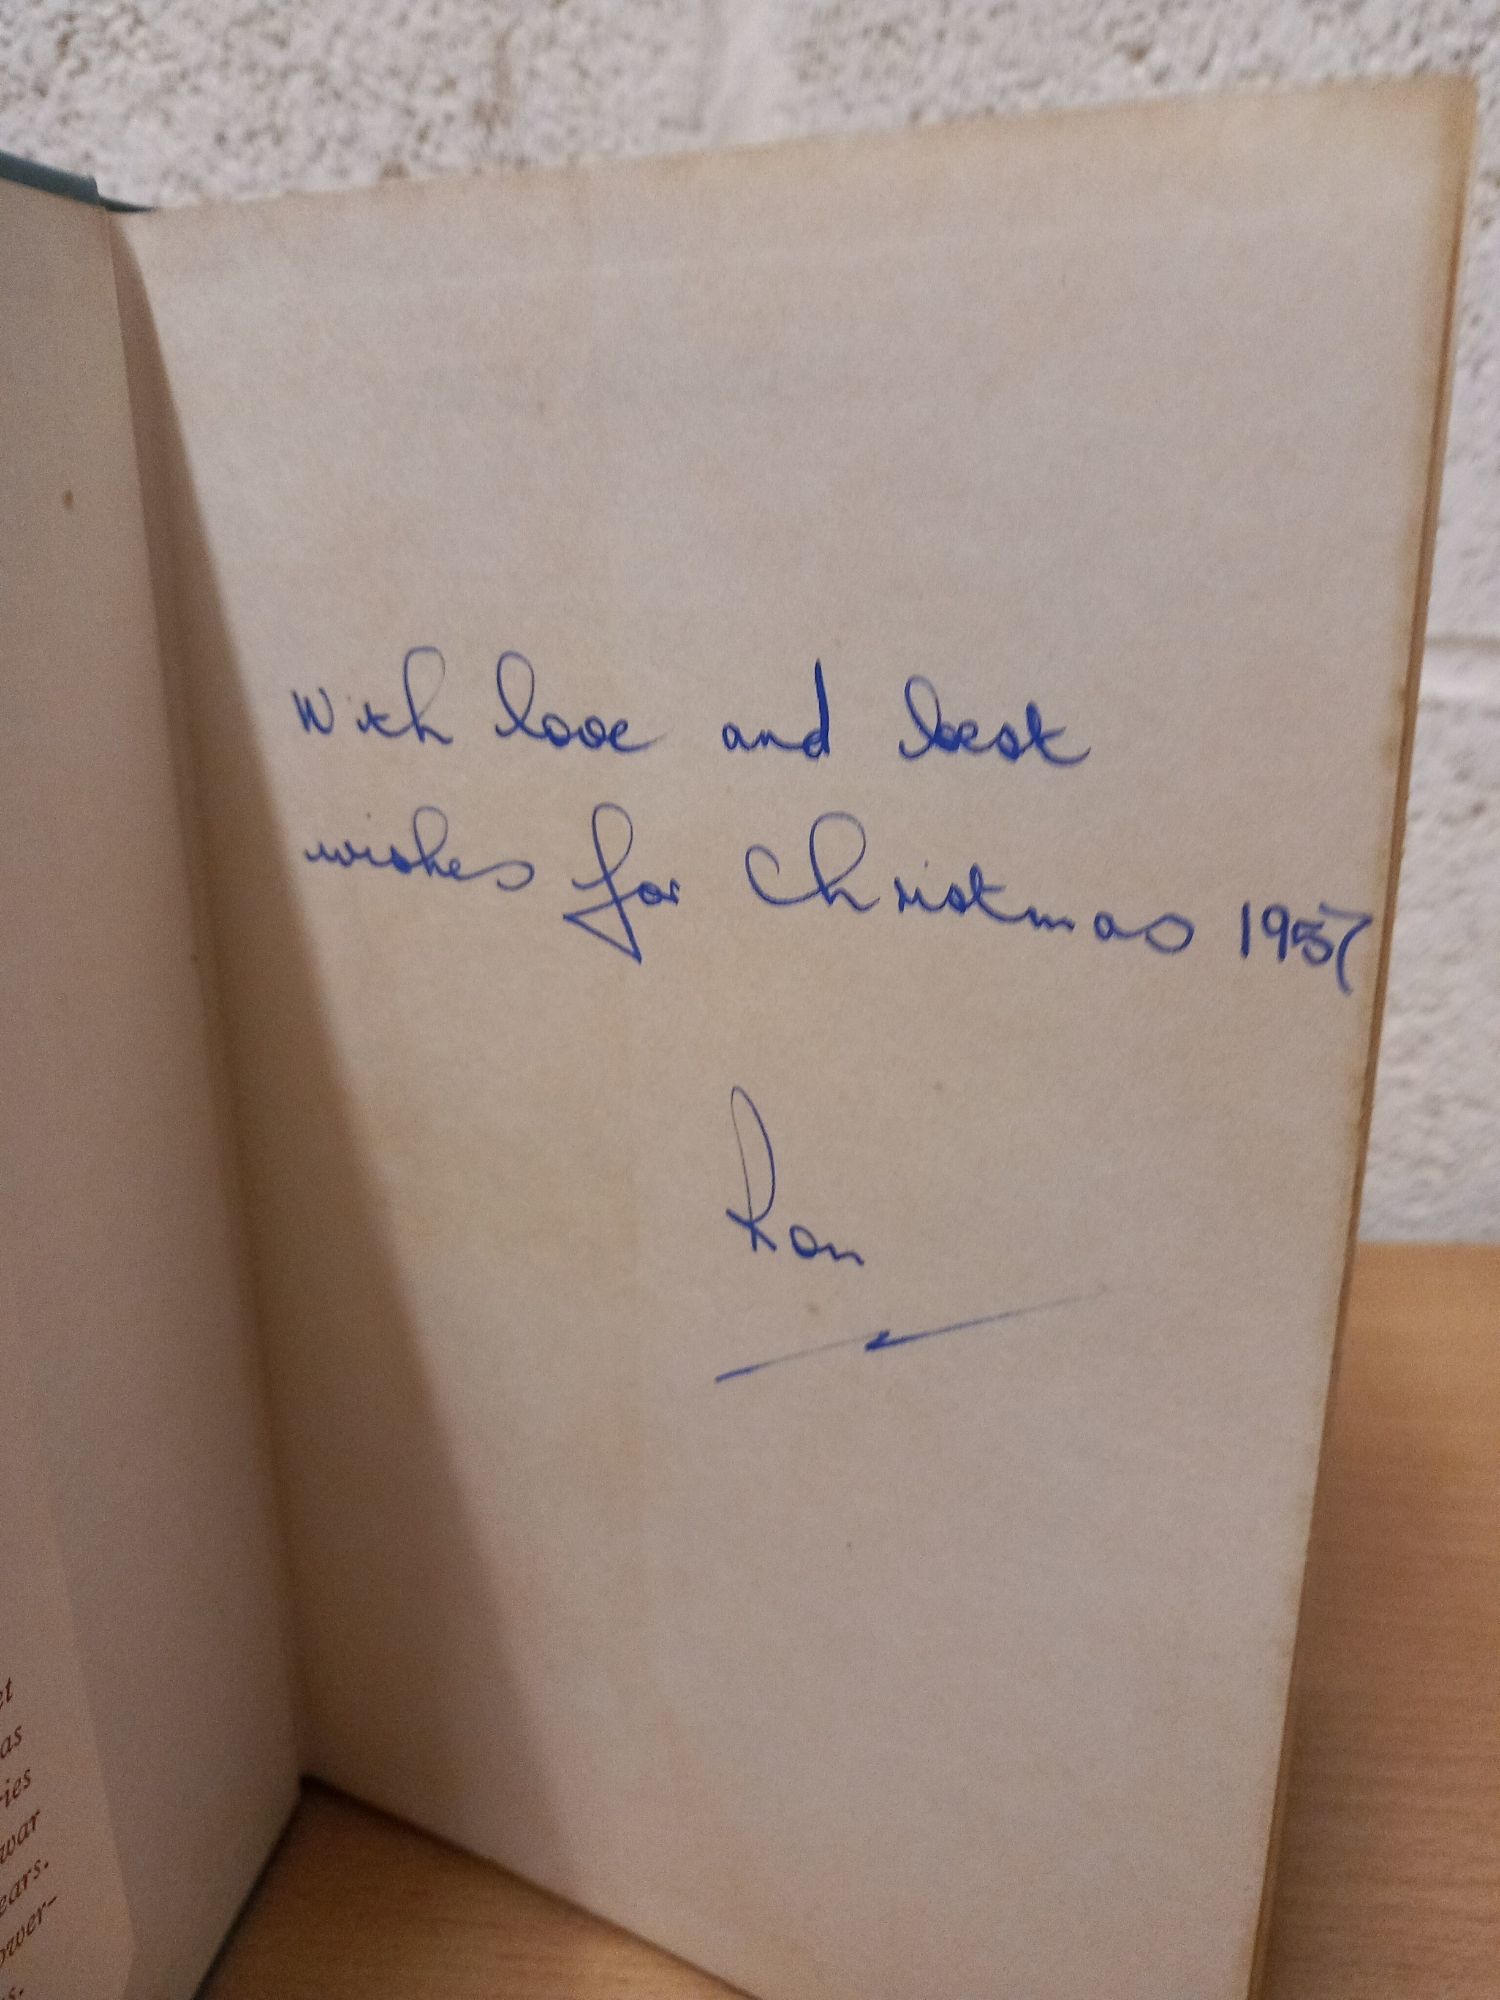 With love and best
wishes for Christmas 1957
Ron
et
as
ries
war
ears.
ower-
s.